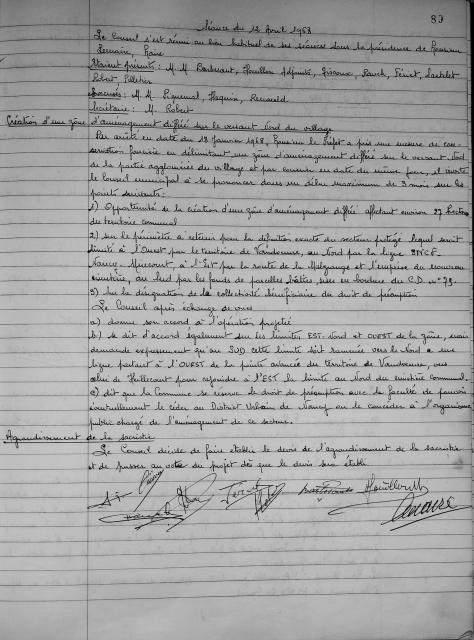 89
Séance du 12 Avril 1968
Le Conseil s'est réuni au lieu habituel de ses séances sous la présidence de Monsieur
Lemaire, Maire
Etaient présents : M M Barbesant, Houillon Adjoints, Rauch, Février, Lachelet
Robert, Pelletier
Excusés : M. M. Piquemal, Hoquin, Renauld
Secrétaire : M. Robert
Création d'une zône d'aménagement différé sur le versant Nord du village
Par arrêté en date du 18 Janvier 1968, Monsieur le Préfet a pris une mesure de con-
servation foncière en délimitant une zône d'aménagement différé sur le versant Nord
de la partie agglomérée du village et par courrier en date du même jour, il invite
le Conseil municipal à se prononcer dans un délai maximum de 3 mois sur les
points suivants :
1) Opportunité de la création d'une zône d'aménagement différé affectant environ 27 hectares
du territoire communal
2) sur le périmètre à retenir pour la définition exacte du secteur protégé lequel serait
limité à l'Ouest par le territoire de Vandoeuvre, au Nord par la ligne SNCF
Nancy-Mirecourt, à l'Est par la route de la Malgrange et l'emprise du nouveau
cimetière, au Sud par les fonds de parcelles bâties, sises en bordure du C.D. n° 79.
3) Sur la désignation de la collectivité bénéficiaire du droit de préemption
Le Conseil après échange de vues
a) donne son accord à l'opération projetée
b) se dit d'accord également sur les limites EST-Nord et OUEST de la zône, mais
demande expressément qu'au SUD cette limite soit ramenée vers le Nord à une
ligne partant à l'OUEST de la pointe avancée du territoire de Vandoeuvre, vers
celui de Heillecourt pour rejoindre à l'EST la limite au Nord du cimetière communal.
c) dit que la Commune se réserve le droit de préemption avec la faculté de pouvoir
éventuellement le céder au District Urbain de Nancy ou le concéder à l'organisme
public chargé de l'aménagement de ce secteur.
Agrandissement de la sacristie
Le Conseil décide de faire établir le devis de l'agrandissement de la sacristie
et de passer au vote du projet dès que le devis sera établi
Houillon
Lemaire